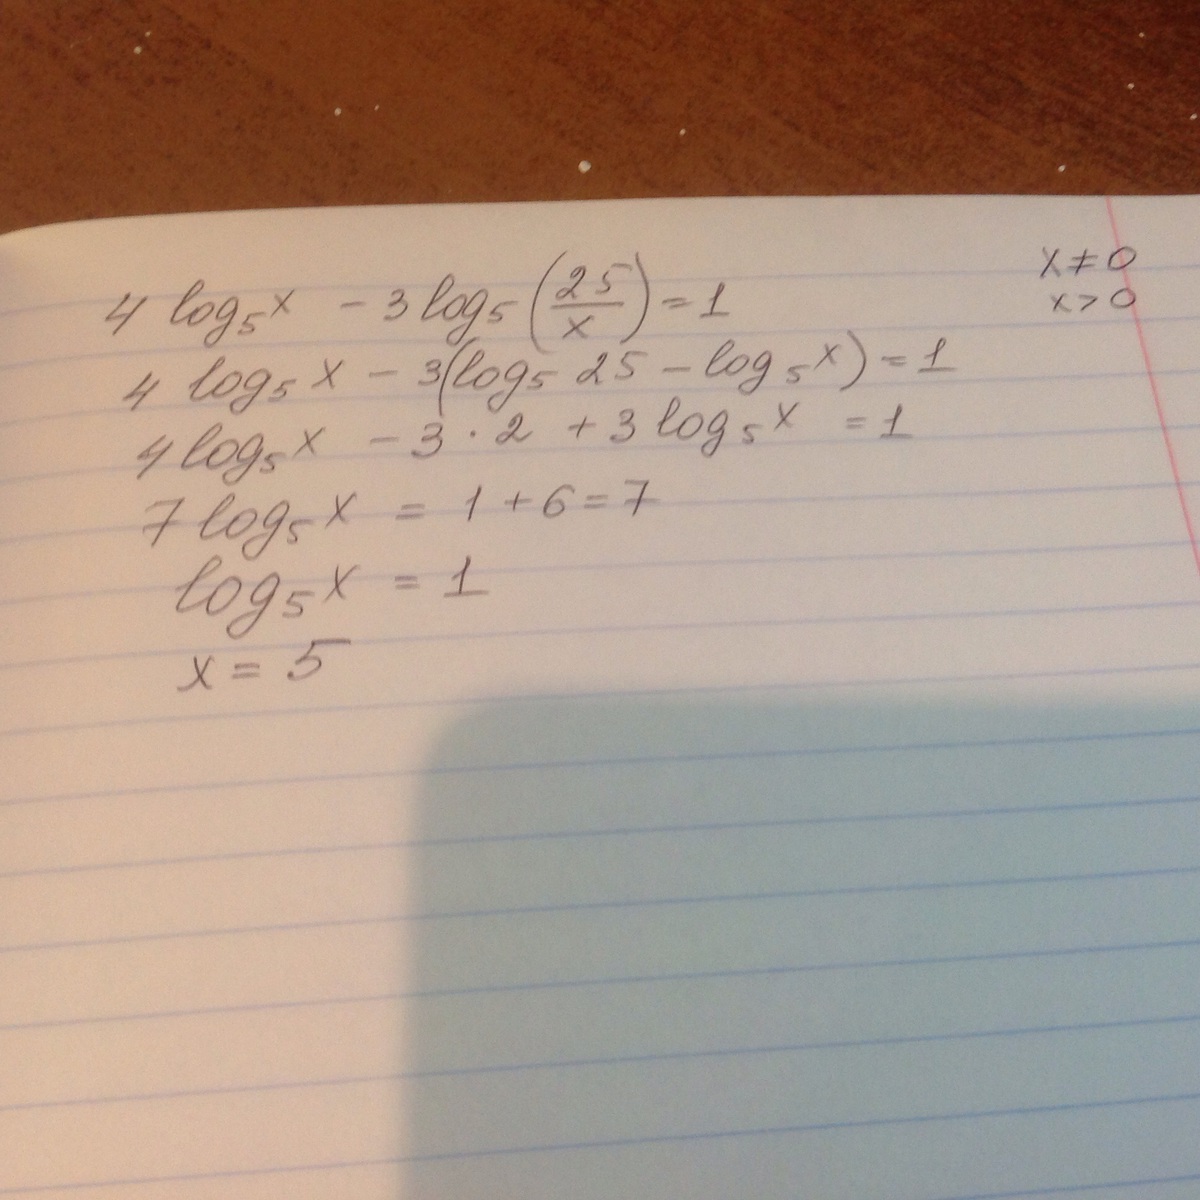 4 log₅x - 3 log₅(25/x) = 1
x ≠ 0
x > 0
4 log₅x - 3(log₅25 - log₅x) = 1
4 log₅x - 3 · 2 + 3 log₅x = 1
7 log₅x = 1 + 6 = 7
log₅x = 1
x = 5